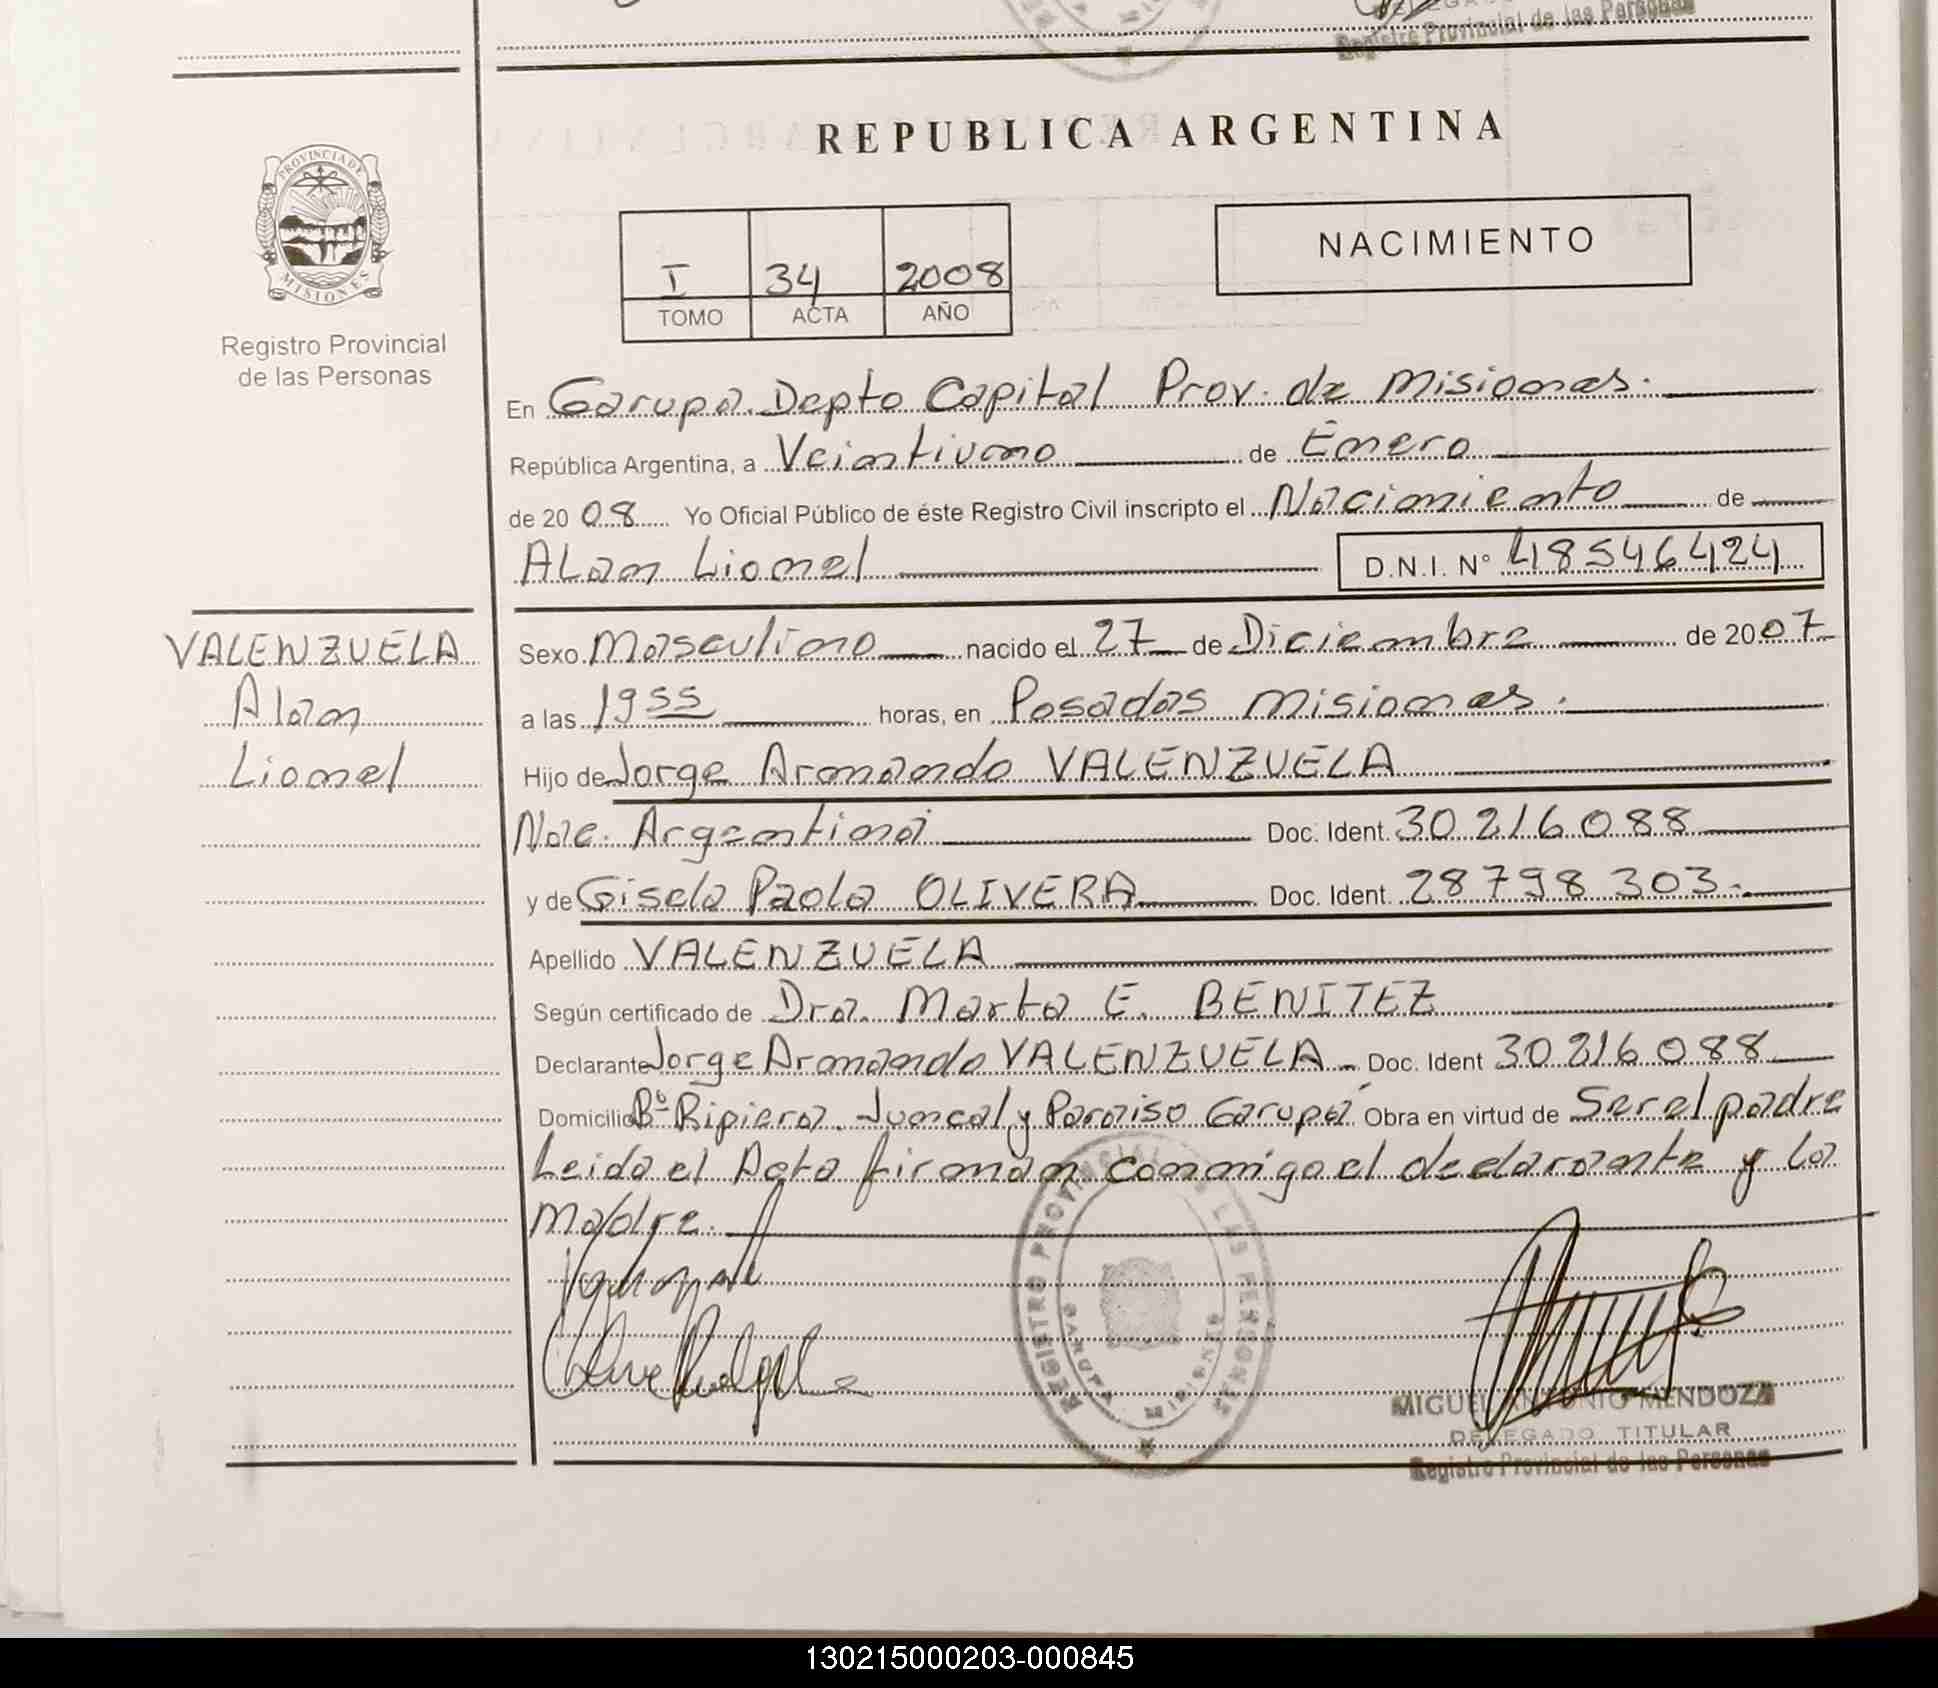 Registro Provincial de las Personas
PROVINCIA DE
MISIONES
Registro Provincial
de las Personas
REPUBLICA ARGENTINA
I 34 2008
TOMO ACTA AÑO
NACIMIENTO
En Garupa. Depto Capital Prov. de Misiones.
República Argentina, a Veintiuno de Enero
de 20 08 Yo Oficial Público de éste Registro Civil inscripto el Nacimiento de
ALan Lionel D.N.I. Nº 48546424
VALENZUELA
Alan
Lionel
Sexo Masculino nacido el 27 de Diciembre de 20 07
a las 19 55 horas, en Posadas Misiones.
Hijo de Jorge Armando VALENZUELA
Nac. Argentina Doc. Ident. 30216088
y de Gisela Paola OLIVERA Doc. Ident. 28798303.
Apellido VALENZUELA
Según certificado de Dra. Marta E. BENITEZ
Declarante Jorge Armando VALENZUELA Doc. Ident 30216088
Domicilio Bº Ripiera. Juncal y Paraiso Garupá Obra en virtud de Ser el padre
Leida el Acta firman conmigo el declarante y la
Madre.
REGISTRO PROVINCIAL DE LAS PERSONAS
GARUPA MISIONES
MIGUEL ANTONIO MENDOZA
DELEGADO TITULAR
Registro Provincial de las Personas
130215000203-000845